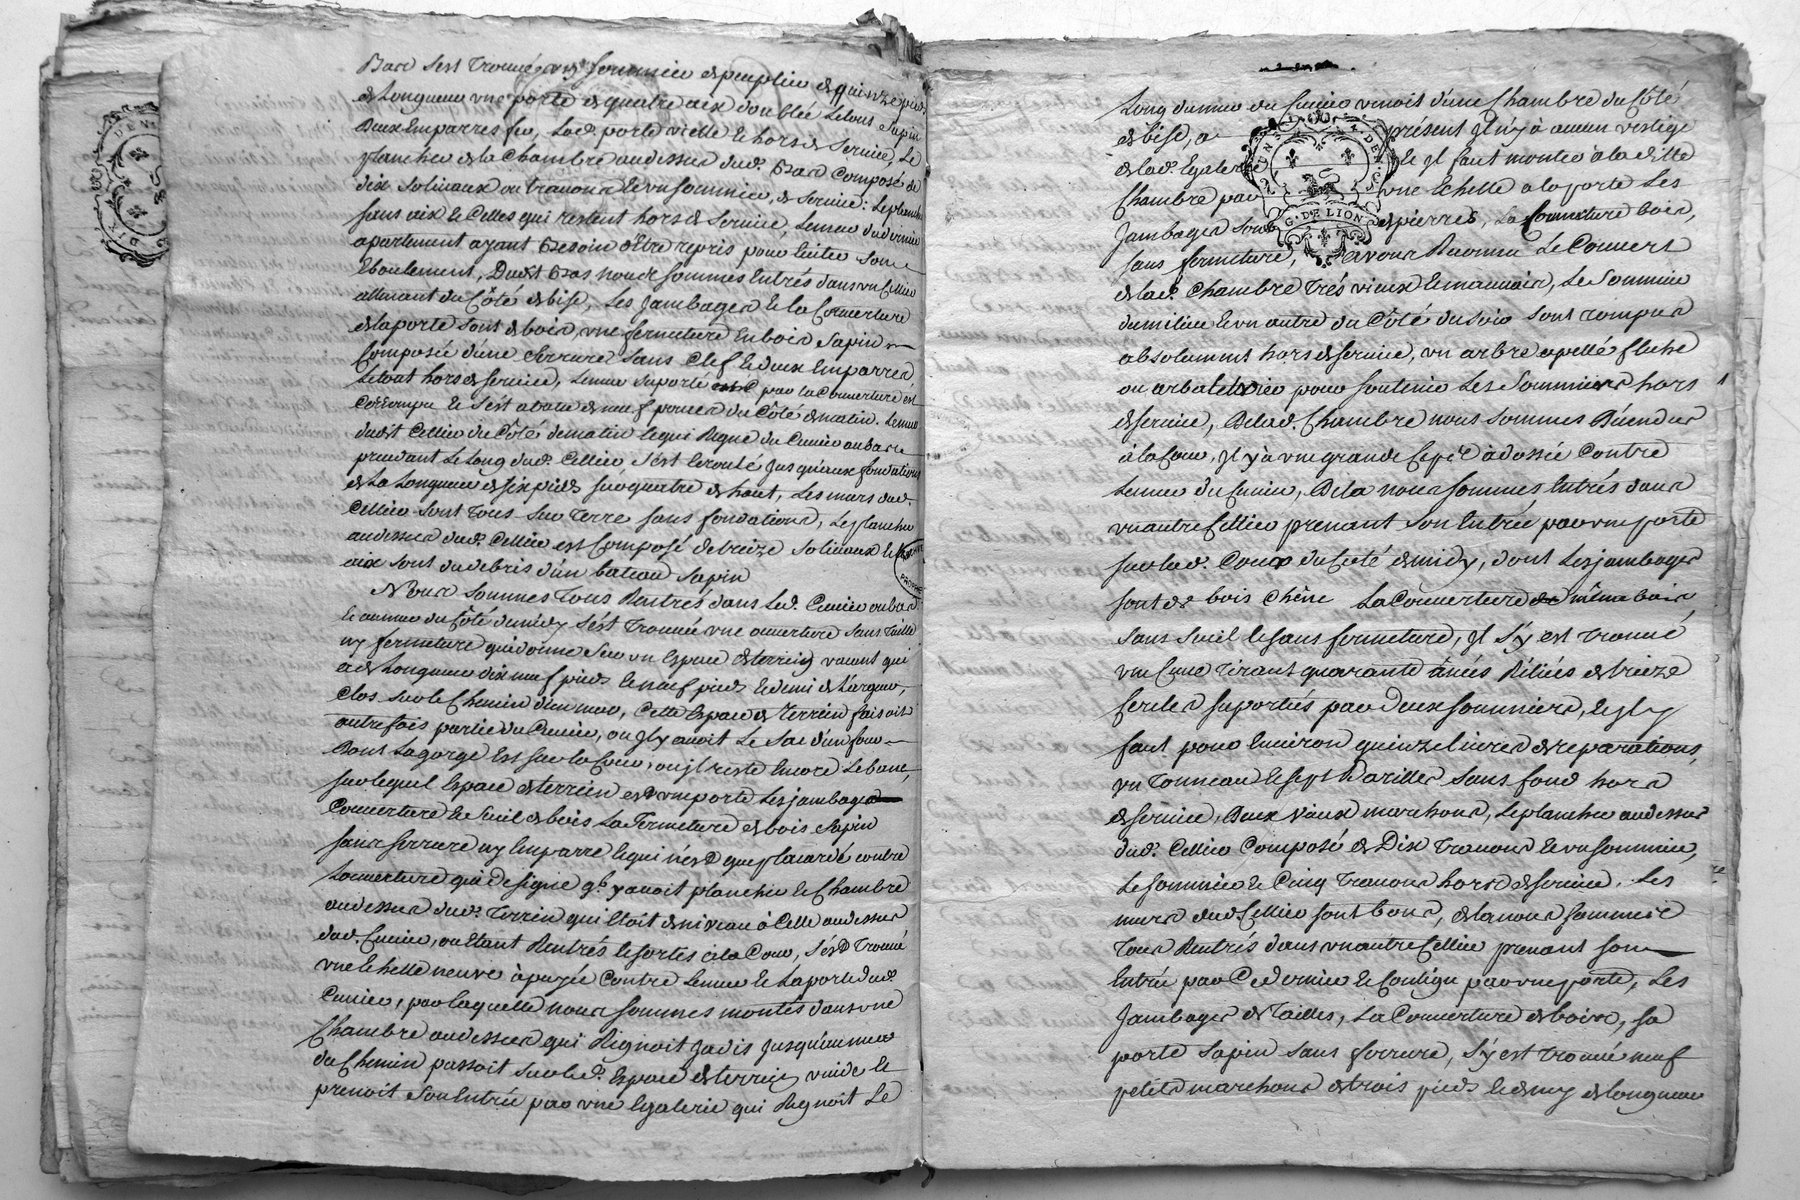 Bas s'est trouvé un sommier de peuplier de quinze pieds
de Longueur une porte de quatre aix doublée le tout Sapin
Deux Emparres fer, Lad. porte vielle et hors de Service, Le
plancher de la Chambre audessus dud. Bas Composé de
dix soliveaux ou travons et un sommier, de Service: Le plancher
sans aix et Celles qui restent hors de Service, Le mur du dernier
apartement ayant Besoin d'être repris pour Eviter son
Eboulement, Dudit Bas nous sommes Entrés dans un Cellier
du Côté de bise, Les Jambages et la Couverture
de la porte sont de bois, une fermeture En bois Sapin
Composée d'une Serrure sans Clef et deux Emparres
Le tout hors de service, Le mur suporté par la Couverture est
Corrompu et s'est abatu de neuf pouces du Côté de matin. Le mur
dudit Cellier du Côté de matin et qui Regne du Cuvier au Bas
prendant Le Long dud. Cellier, s'est Ecroulé Jusqu'aux fondations
de La Longueur de six pieds sur quatre de haut, Les murs dud.
Cellier sont tous sur Terre sans fondations, Le plancher
audessus dud. Cellier est Composé de treize Soliveaux et les
aix sont de debris d'un bateau Sapin
Nous Sommes Tous Rentrés dans Led. Cuvier ou bas
Et au mur du Côté de midy s'est Trouvée une ouverture sans Taille
ny fermeture qui donne sur un Espace de terrein vacant qui
a de Longueur dix neuf pieds et neuf pieds et demi de Largeur,
Clos sur le Chemin d'un mur, Cette Espace de Terrein faisoit
autrefois partie du Cuvier, ou Jl y avoit Le Sac d'un four
Dont La gorge Est sur la Cour, ou jl reste Encore Le banc,
sur lequel Espace de terrein est une porte Les jambages
Couverture et Seuil de bois La Fermeture de bois Sapin
sans serrure ny Emparre et qui n'est que placardé contre
L'ouverture qui designe qu'Jl y avoit plancher et Chambre
audessus dud. Terrein qui Etoit de niveau à Celle audessus
dud. Cuvier, ou Etant Rentrés et sortis à la Cour, s'est Trouvé
une Echelle neuve apuyée Contre Le mur et La porte dud.
Cuvier, par laquelle nous sommes montés dans une
Chambre audessus qui Regnoit Jadis Jusqu'au mur
du Chemin passoit sur led. Espace de terrein vuide et
prenoit son Entrée par une Egalerie qui Regnoit Le
Long du mur du Cuvier venoit d'une Chambre du Côté
de bise, a présent Jl n'y à aucun vestige
de lad. Egalerie Jl faut monter à la ditte
Chambre par une Echelle a la porte Les
Jambages sont de pierres, La Couverture bois,
sans fermeture, avons Reconnu Le Couvert
de lad. Chambre Trés vieux et mauvais, Le Sommier
du milieu et un autre du Côté du soir sont rompus
absolument hors de service, un arbre apellé fleche
ou arbaletrier pour soutenir Les Sommiers hors
de service, De lad. Chambre nous sommes Décendus
à la Cour, Jl y à une grande adossée Contre
Le mur du Cuvier, De la nous sommes Entrés dans
un autre Cellier prenant son Entrée par une porte
sur lad. Cour du Coté de midy, dont Les jambages
sont de bois Chêne La Couverture de même bois
sans seuil et sans fermeture, Jl s'y est Trouvé
une Cuve Tirant quarante ânées Réliées de treize
Cercles suportés par deux sommiers, et Jl y
faut pour Environ quinze livres de reparations,
un Tonneau et sept Barilles sans fond hors
de service, Deux vieux marchons, Le plancher audessus
dud. Cellier Composé de Dix travons et un sommier,
Le sommier et Cinq Travons hors de service. Les
murs dud. Cellier sont bons, de la nous sommes
Tous Rentrés dans un autre Cellier prenant son
Entrée par Ce dernier et Contigu par une porte, Les
Jambages de Tailles, La Couverture de bois, sa
porte Sapin sans serrure, s'y est trouvé neuf
petits marchons de trois pieds et demy de longueur
G. DE LION